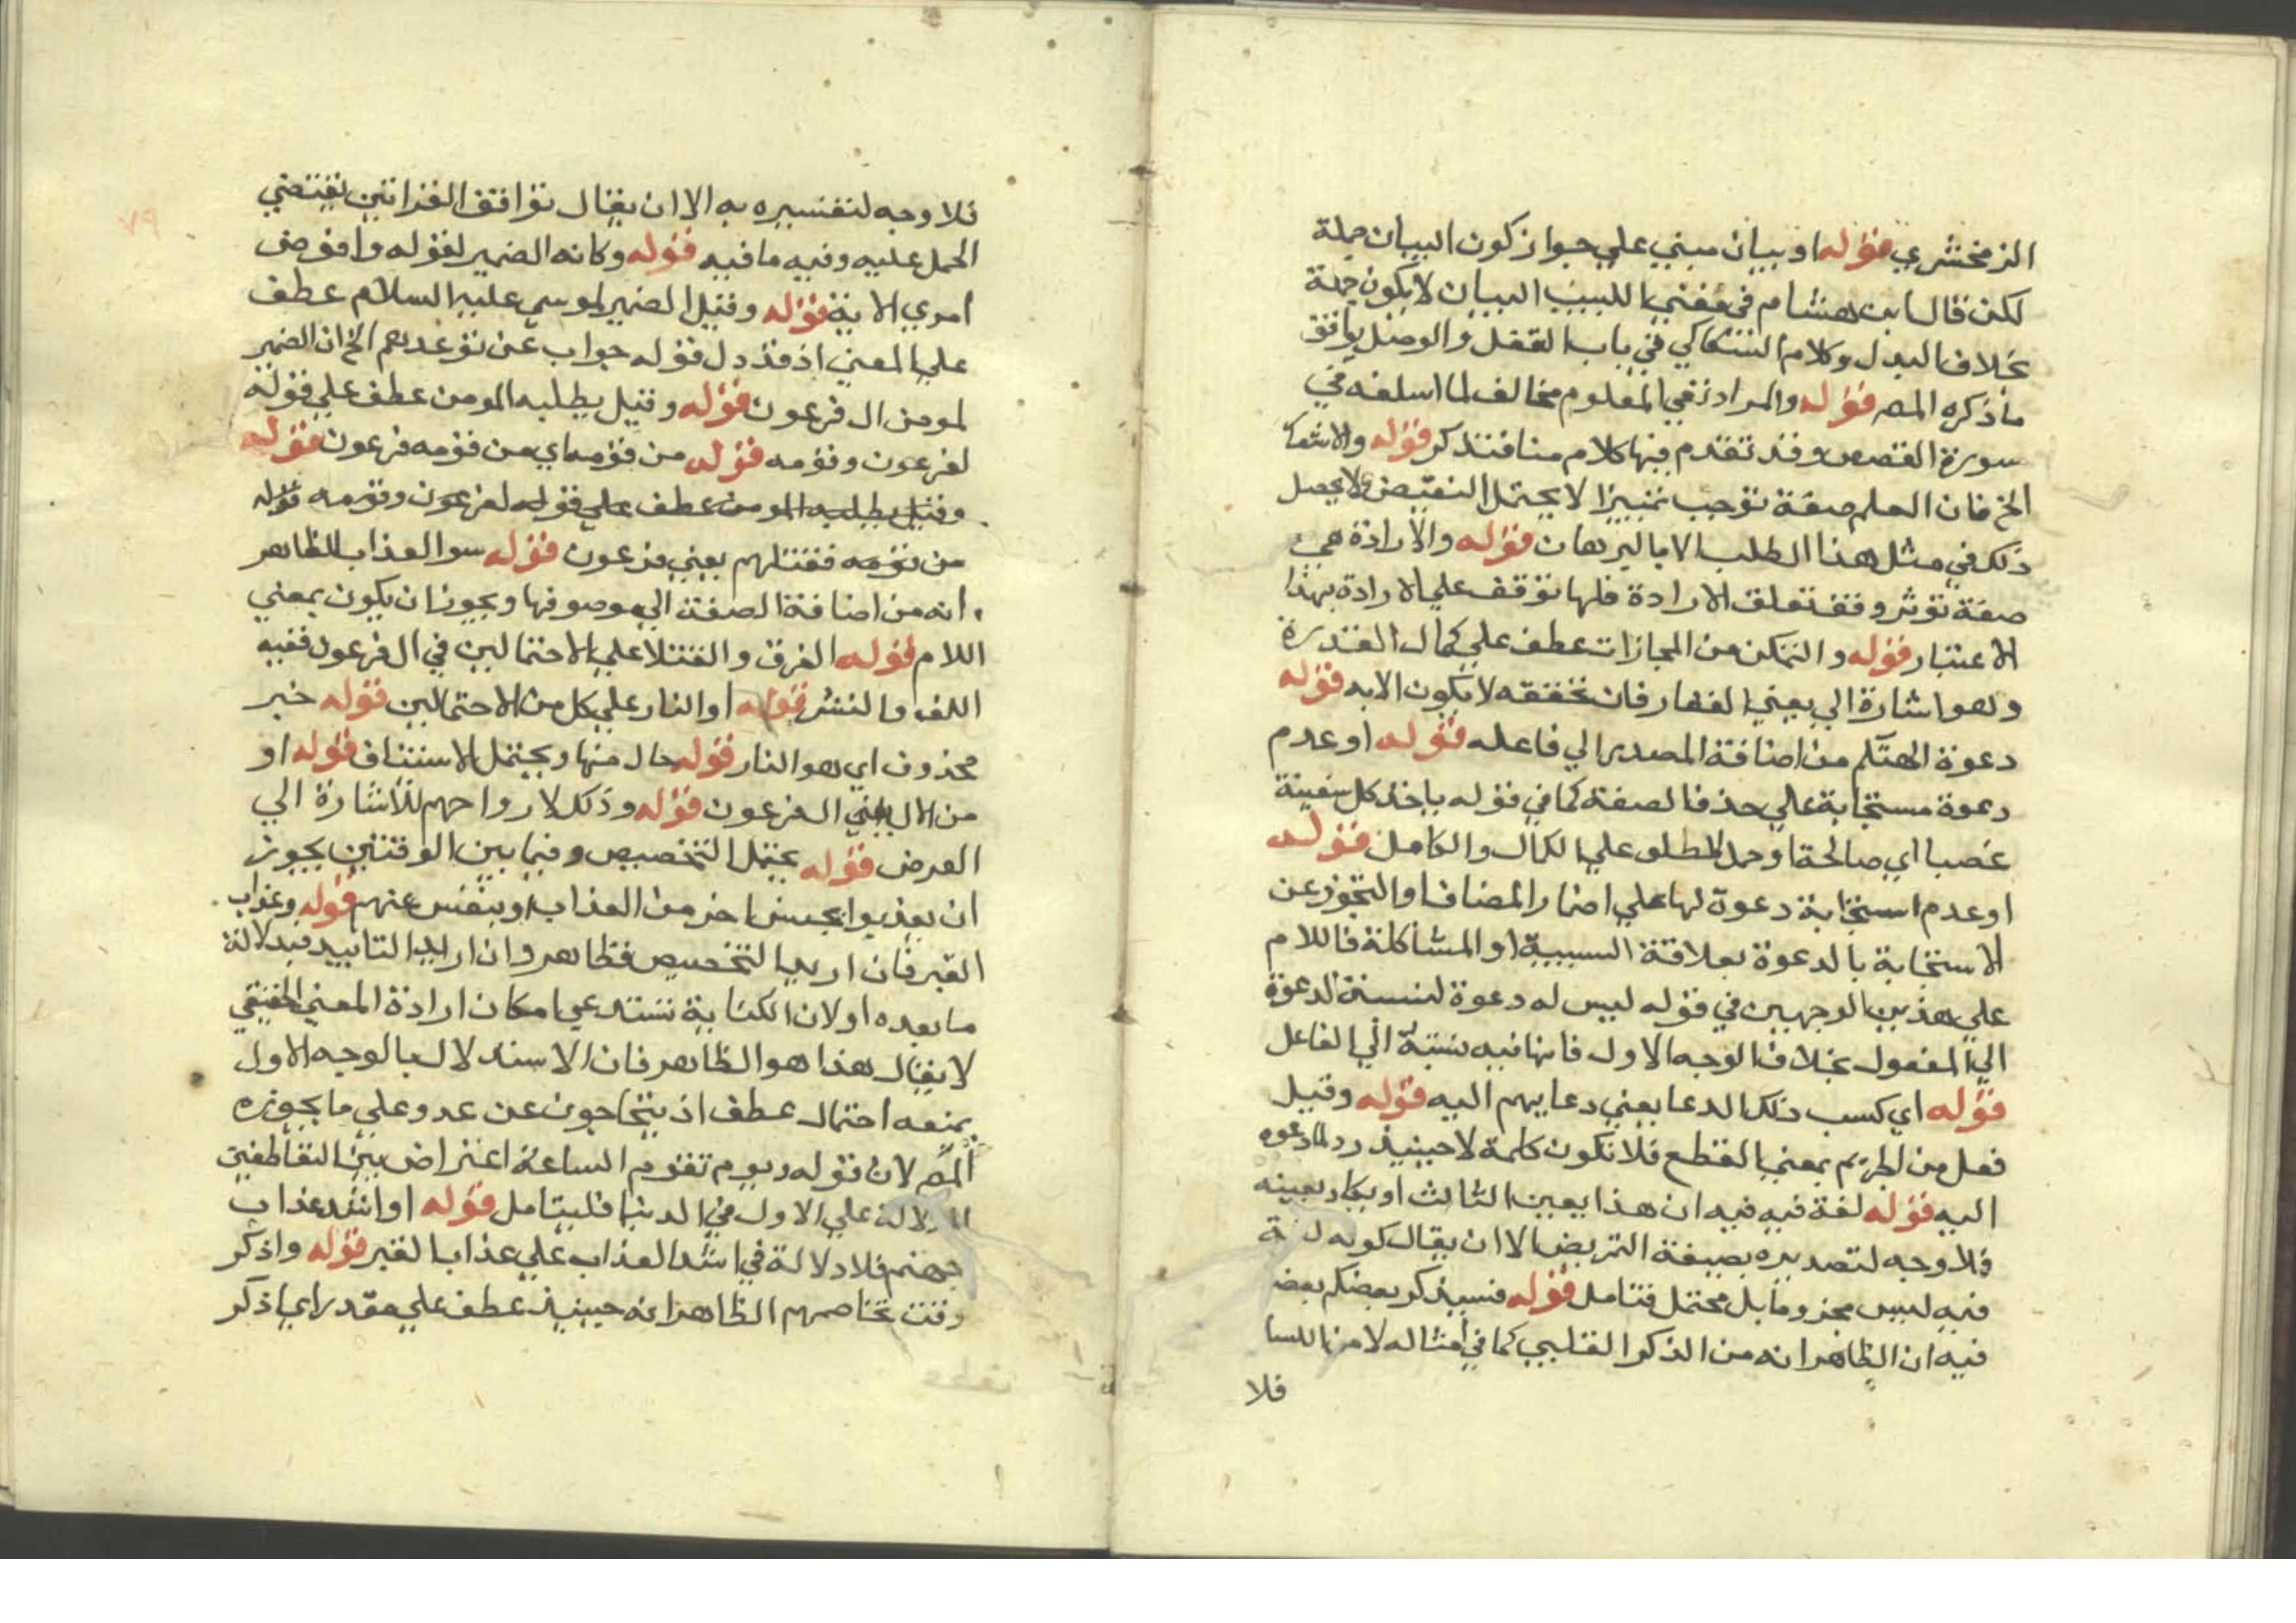 الزمخشري قوله او بيان مبني علي جواز كون البيان جملة
لكن قال ابن هشام في مغني اللبيب البيان لا يكون جملة
بخلاف البدل وكلام السكاكي في باب الفصل والوصل يوافق
ما ذكره المصر قوله والمراد نفي المعلوم مخالف لما اسلفه في
سورة القصص وقد تقدم فيها كلام منا فتذكر قوله والاشعا
الخ فان العلم صفة توجب تمييزا لا يحتمل النقيض ولا يحصل
ذلك في مثل هذا الطلب الا بالبرهان قوله والارادة هي
صفة توثر وفق تعلق الارادة فلها توقف علي الارادة بهذا
الاعتبار قوله والتمكن من المجازات عطف علي كمال القدرة
وهو اشارة الي معني الغفار فان تحققه لا يكون الا به قوله
دعوة الهتكم من اضافة المصدر الي فاعله قوله او عدم
دعوة مستجابة علي حذف الصفة كما في قوله ياخذ كل سفينة
غصبا اي صالحة او حمل المطلق علي الكمال والكامل قوله
او عدم استجابة دعوة لها علي اضمار المضاف او التجوز عن
الاستجابة بالدعوة بعلاقة السببية او المشاكلة فاللام
علي هذين الوجهين في قوله ليس له دعوة لنسبة الدعوة
الي المفعول بخلاف الوجه الاول فانها فيه نسبة الي الفاعل
قوله اي كسب ذلك الدعا يعني دعايهم اليه قوله وقيل
فعل من الجرم بمعني القطع فلا تكون كلمة لا حينيذ رد لما دعوه
اليه قوله لغة فيه فيه ان هذا يعين الثالث او يكاد يعينه
فلا وجه لتصديره بصيغة التمريض الا ان يقال كونه لغة
فيه ليس مجزوما بل محتمل فتامل قوله فسيذكر بعضكم بعضا
فيه ان الظاهر انه من الذكر القلبي كما في امثاله لا من اللسا
فلا
فلا وجه لتفسيره به الا ان يقال توافق القراتين يقتضي
الحمل عليه وفيه ما فيه قوله وكانه الضمير لقوله وافوض
امري الاية قوله وقيل الضمير لموسي عليه السلام عطف
علي المعني اذ قد دل قوله جواب عن توعدهم الخ ان الضمير
لمومن ال فرعون قوله وقيل بطلبه المومن عطف علي قوله
لفرعون وقومه قوله من قومه اي من قومه فرعون قوله
وقيل بطلبه المومن عطف علي قوله لفرعون وقومه قوله
من قومه فقتلهم يعني فرعون قوله سوا العذاب الظاهر
انه من اضافة الصفة الي موصوفها ويجوز ان يكون بمعني
اللام قوله الغرق والقتل علي الاحتمالين في ال فرعون ففيه
اللف والنشر قوله او النار علي كل من الاحتمالين قوله خبر
محذوف اي هو النار قوله حال منها ويحتمل الاستئناف قوله او
من الال يعني ال فرعون قوله وذلك لارواحهم للاشارة الي
العرض قوله يحتمل التخصيص وفيما بين الوقتين يجوز
ان يعذبوا بجنس اخر من العذاب او ينفس عنهم قوله وعذاب
القبر فان اريد التخصيص فظاهر وان اريد التابيد فبدلالة
ما بعده او لان الكناية تستدعي امكان ارادة المعني الحقيقي
لا يقال هذا هو الظاهر فان الاستدلال بالوجه الاول
يمنعه احتمال عطف اذ يتحاجون عن عدوا علي ما يجوزه
المصر لان قوله ويوم تقوم الساعة اعتراض بين المتعاطفين
للدلالة علي الاول في الدنيا فليتامل قوله او اشد عذاب
جهنم فلا دلالة في اشد العذاب علي عذاب القبر قوله واذكر
وقت تخاصمهم الظاهر انه حينيذ عطف علي مقدر اي اذكر